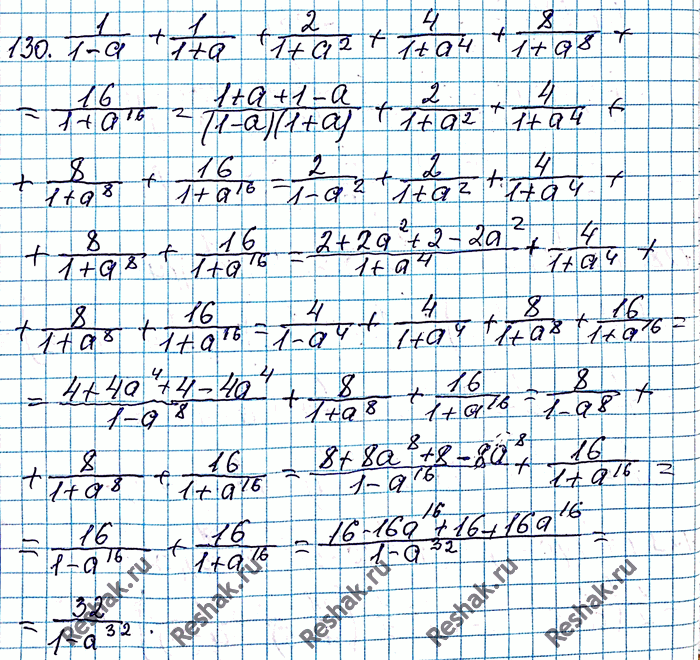 130. 1/(1-a) + 1/(1+a) + 2/(1+a^2) + 4/(1+a^4) + 8/(1+a^8) +
= 16/(1+a^16) = (1+a+1-a)/((1-a)(1+a)) + 2/(1+a^2) + 4/(1+a^4) +
+ 8/(1+a^8) + 16/(1+a^16) = 2/(1-a^2) + 2/(1+a^2) + 4/(1+a^4) +
+ 8/(1+a^8) + 16/(1+a^16) = (2+2a^2+2-2a^2)/(1+a^4) + 4/(1+a^4) +
+ 8/(1+a^8) + 16/(1+a^16) = 4/(1-a^4) + 4/(1+a^4) + 8/(1+a^8) + 16/(1+a^16) =
= (4+4a^4+4-4a^4)/(1-a^8) + 8/(1+a^8) + 16/(1+a^16) = 8/(1-a^8) +
+ 8/(1+a^8) + 16/(1+a^16) = (8+8a^8+8-8a^8)/(1-a^16) + 16/(1+a^16) =
= 16/(1-a^16) + 16/(1+a^16) = (16-16a^16+16+16a^16)/(1-a^32) =
= 32/(1-a^32).
Reshak.ru Reshak.ru Reshak.ru Reshak.ru Reshak.ru